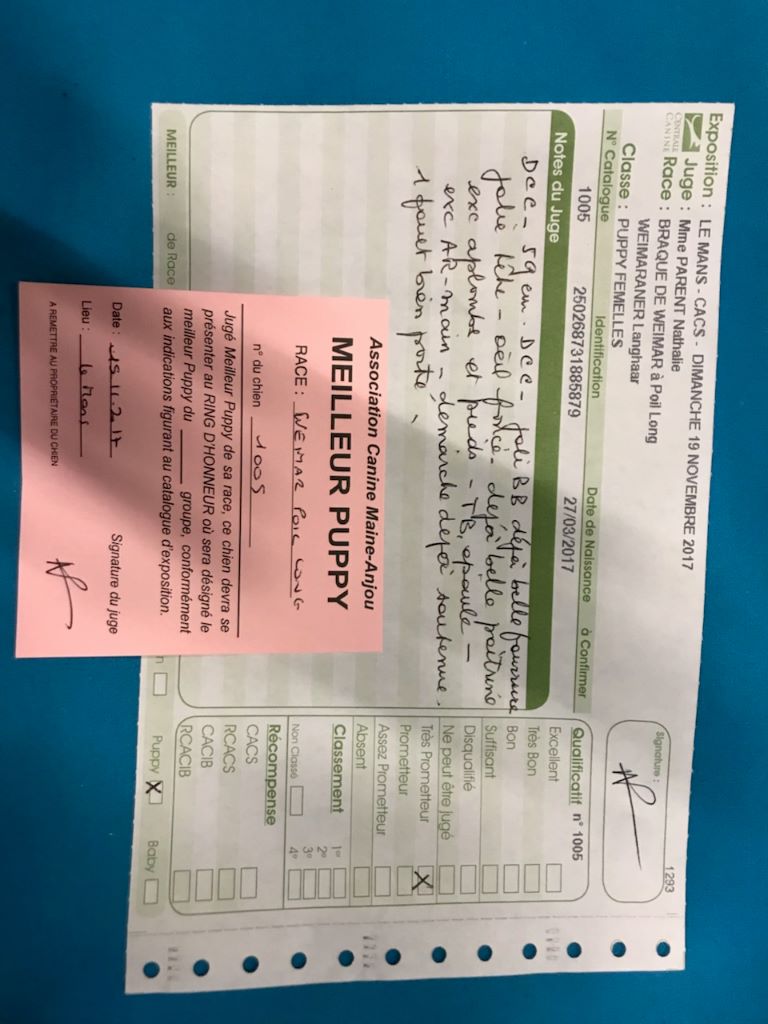 1293
Exposition : LE MANS - CACS - DIMANCHE 19 NOVEMBRE 2017
Juge : Mme PARENT Nathalie
CENTRALE CANINE
Race : BRAQUE DE WEIMAR à Poil Long
WEIMARANER Langhaar
Classe : PUPPY FEMELLES
Signature :
N° Catalogue Identification Date de Naissance à Confirmer
1005 250268731885879 27/03/2017
Notes du Juge
DCC - 59 cm. DCC - Joli BB déjà belle fourrure
Jolie tête - oeil foncé - déjà belle poitrine
exc aplombs et pieds - TB épaule -
exc AR-main - démarche déjà soutenue.
1 fouet bien porté.
Qualificatif n° 1005
Excellent
Très Bon
Bon
Suffisant
Disqualifié
Ne peut être jugé
Très Prometteur X
Prometteur
Assez Prometteur
Absent
Classement
1°
2°
Non Classé 3°
4°
Récompense
CACS
RCACS
CACIB
RCACIB
MEILLEUR : de Race
Puppy X Baby
Association Canine Maine-Anjou
MEILLEUR PUPPY
RACE : WEIMAR POIL LONG
n° du chien 1005
Jugé Meilleur Puppy de sa race, ce chien devra se
présenter au RING D'HONNEUR où sera désigné le
meilleur Puppy du groupe, conformément
aux indications figurant au catalogue d'exposition.
Date : 19.11.2017 Signature du juge
Lieu : le Mans
A REMETTRE AU PROPRIÉTAIRE DU CHIEN